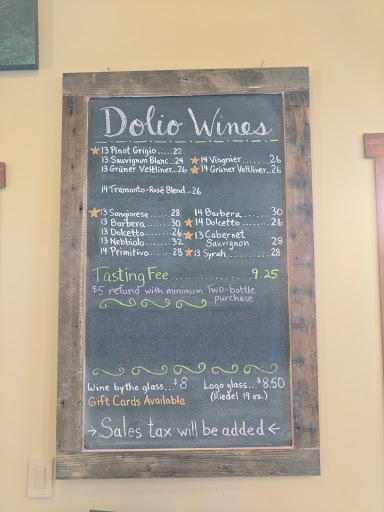 Dolio Wines
13 Pinot Grigio.....22
13 Sauvignon Blanc..24
13 Grüner Veltliner...26
14 Viognier........26
14 Grüner Veltliner...26
14 Tramonto-Rosé Blend..26
13 Sangiovese......28
13 Barbera.........30
13 Dolcetto........26
13 Nebbiolo.......32
14 Primitivo.......28
14 Barbera........30
14 Dolcetto.......26
13 Cabernet
Sauvignon 28
13 Syrah..........28
Tasting Fee................9.25
$5 refund with minimum Two-bottle
purchase
Wine by the glass..$8
Gift Cards Available
Logo glass...$8.50
(Riedel 19 oz.)
→Sales tax will be added←